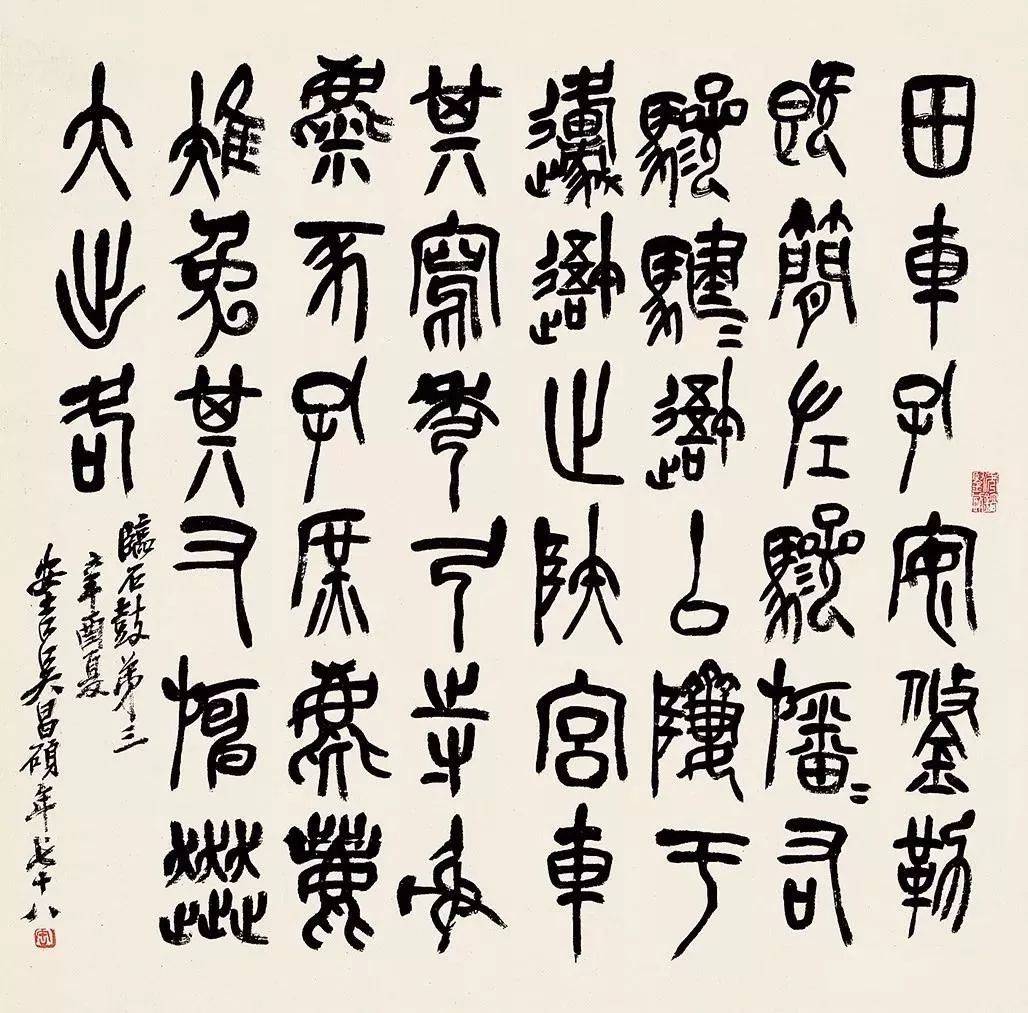 田車孔安鋚勒
既簡左驂旛=右
驂騝=避以隮于
邍避止陝宮車
其寫秀弓寺射
麋豕孔庶麀鹿
雉兔其又奔
大出各
臨石鼓弟三
辛酉夏
安吉吳昌碩年七十八